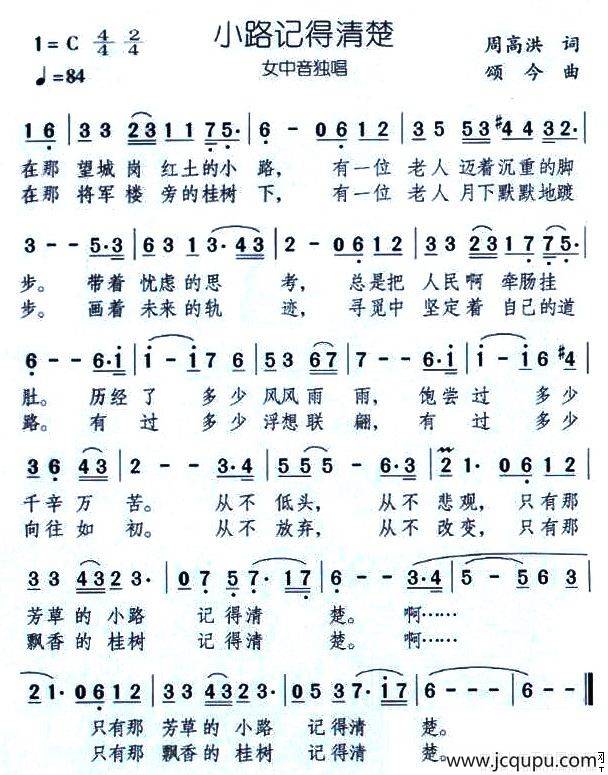 小路记得清楚
1=C 4/4 2/4
♩=84
女中音独唱
周高洪 词
颂今 曲
16 | 33 23 11 75· | 6 - 0612 | 35 53 #44 32· |
在那 望城 岗 红土的小 路, 有一位 老人 迈着沉重的脚
在那 将军 楼 旁的桂树 下, 有一位 老人 月下默默地踱
3 - - 5·3 | 63 13 3·43 | 2 - 0612 | 33 523 177 75· |
步。 带着 忧虑 的思 考, 总是把 人民啊 牵肠挂
步。 画着 未来 的轨 迹, 寻觅中 坚定着 自己的道
6 - - 6·i | i - i 76 | 53 367 7 - | 7 - - 6·i | i - i6 #4 |
肚。 历经了 多少 风风雨 雨, 饱尝过 多少
路。 有过 多少 浮想联 翩, 有过 多少
36 43 | 2 - - 3·4 | 55 5 - 6·3 | 21· 0612 |
千辛万 苦。 从不 低头, 从不 悲观, 只有那
向往如 初。 从不 放弃, 从不 改变, 只有那
33 43 23· | 07 57· 17 | 6 - - 3·4 | 5 - 563 |
芳草的 小路 记得清 楚。 啊……
飘香的 桂树 记得清 楚。 啊……
21· 0612 | 33 43 23· | 037 57· i7 | 6 - - - | 6 - - ‖
只有那 芳草的 小路 记得清 楚。
只有那 飘香的 桂树 记得清 楚。
www.jcqupu.com